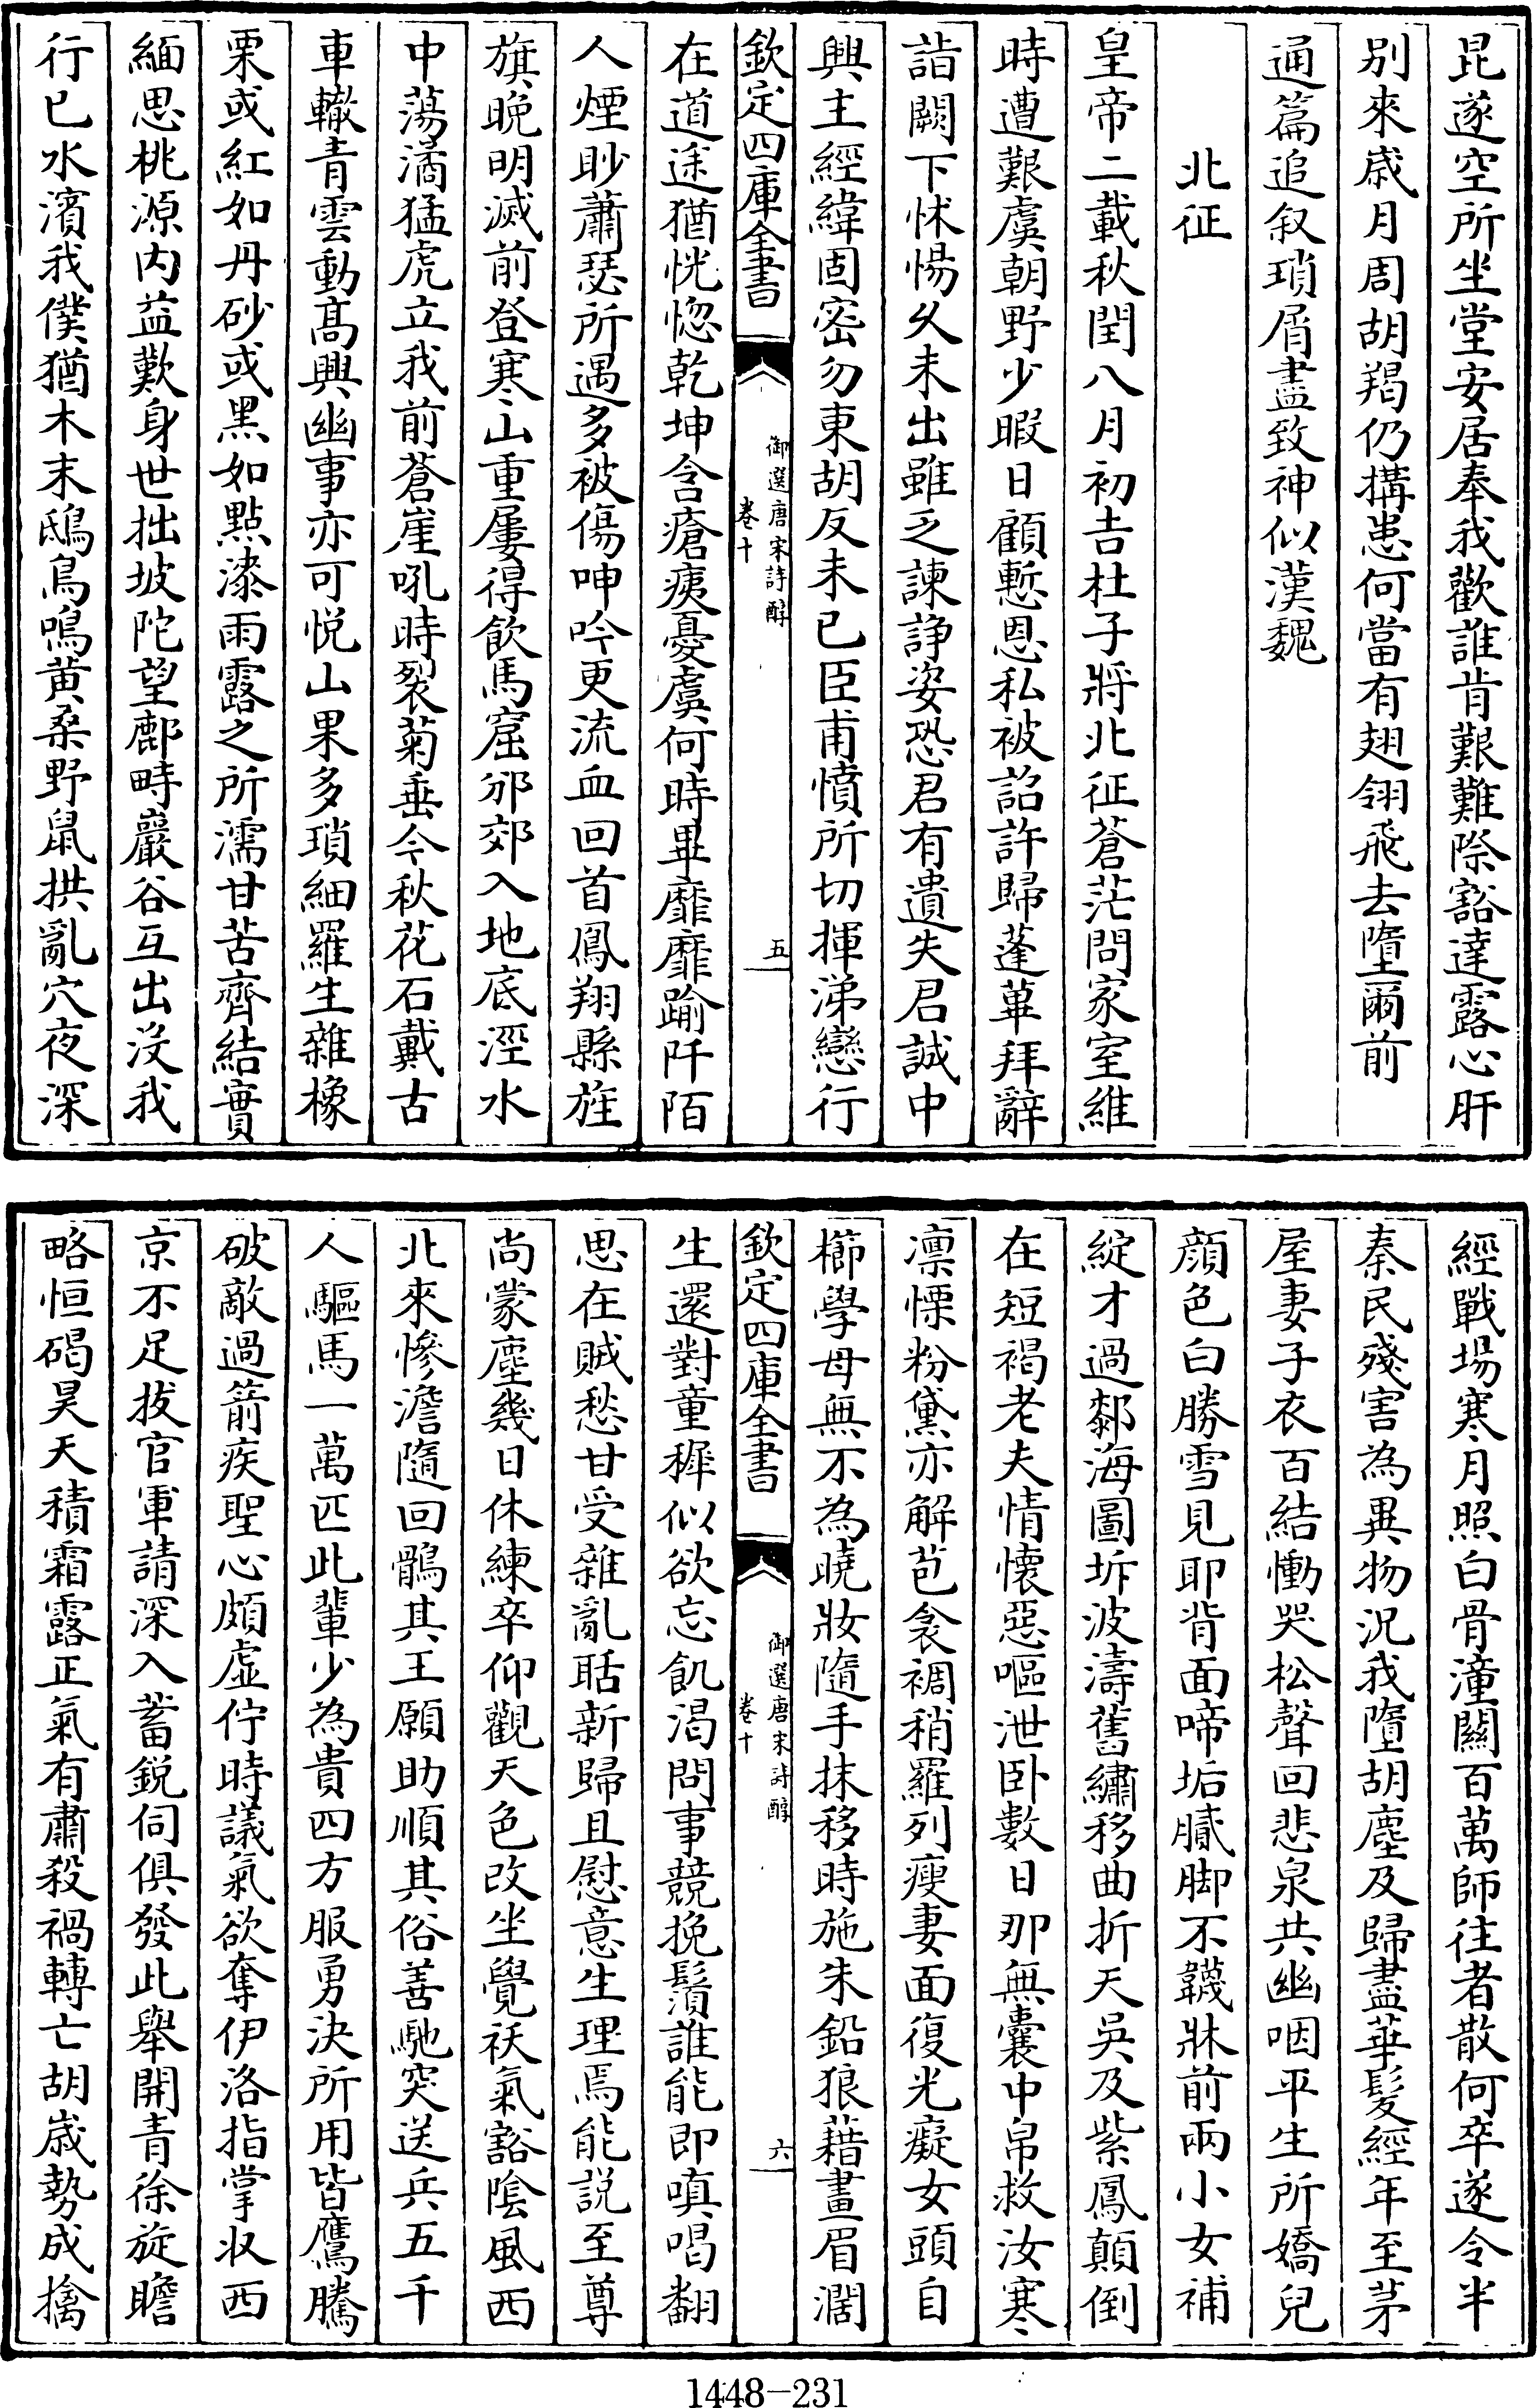 昆遂空所坐堂安居奉我歡誰肯艱難際豁達露心肝
别來歲月周胡羯仍搆患何當有翅翎飛去墮爾前
通篇追叙瑣屑盡致神似漢魏
北征
皇帝二載秋閏八月初吉杜子將北征蒼茫問家室維
時遭艱虞朝野少暇日顧慙恩私被詔許歸蓬蓽拜辭
詣闕下怵惕久未出雖乏諫諍姿恐君有遺失君誠中
興主經緯固密勿東胡反未已臣甫憤所切揮涕戀行
欽定四庫全書
御選唐宋詩醇
卷十
五
在道途猶恍惚乾坤含瘡痍憂虞何時畢靡靡踰阡陌
人煙眇蕭瑟所遇多被傷呻吟更流血回首鳳翔縣旌
旗晚明滅前登寒山重屢得飲馬窟邠郊入地底涇水
中蕩潏猛虎立我前蒼崖吼時裂菊垂今秋花石戴古
車轍青雲動髙興幽事亦可悦山果多瑣細羅生雜橡
栗或紅如丹砂或黑如點漆雨露之所濡甘苦齊結實
緬思桃源内益歎身世拙坡陀望鄜畤巖谷互出没我
行已水濱我僕猶木末鴟鳥鳴黄桑野鼠拱亂穴夜深
經戰場寒月照白骨潼關百萬師往者散何卒遂令半
秦民殘害為異物况我墮胡塵及歸盡華髮經年至茅
屋妻子衣百結慟哭松聲回悲泉共幽咽平生所嬌兒
顔色白勝雪見耶背面啼垢膩脚不韈牀前兩小女補
綻才過䣛海圖坼波濤舊繡移曲折天吳及紫鳳顛倒
在短褐老夫情懷惡嘔泄卧數日那無囊中帛救汝寒
凛慄粉黛亦解苞衾裯稍羅列瘦妻面復光癡女頭自
櫛學母無不為曉妝隨手抹移時施朱鉛狼藉畫眉濶
欽定四庫全書
御選唐宋詩醇
卷十
六
生還對童穉似欲忘飢渴問事競挽鬚誰能即嗔喝翻
思在賊愁甘受雜亂聒新歸且慰意生理焉能説至尊
尚蒙塵幾日休練卒仰觀天色改坐覺祅氣豁陰風西
北來慘澹隨回鶻其王願助順其俗善馳突送兵五千
人驅馬一萬匹此輩少為貴四方服勇決所用皆鷹騰
破敵過箭疾聖心頗虛佇時議氣欲奪伊洛指掌收西
京不足拔官軍請深入蓄鋭伺俱發此舉開青徐旋瞻
略恒碣昊天積霜露正氣有肅殺禍轉亡胡歲勢成擒
1448-231